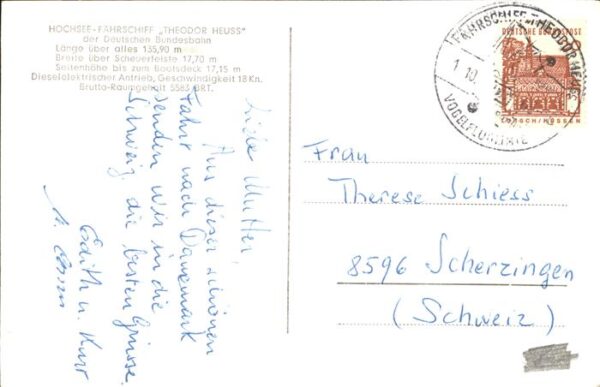 HOCHSEE-FÄHRSCHIFF „THEODOR HEUSS"
der Deutschen Bundesbahn
Länge über alles 135,90 m
Breite über Scheuerleiste 17,70 m
Seitenhöhe bis zum Bootsdeck 17,15 m
Dieselelektrischer Antrieb, Geschwindigkeit 18 Kn.
Brutto-Raumgehalt 5583 BRT.
Liebe Mutter,
Aus dieser schönen
Fahrt nach Dänemark
senden wir in die
Schweiz die besten Grüsse.
Edith u. Kurt
FÄHRSCHIFF THEODOR HEUSS
1.10.
VOGELFLUGLINIE
DEUTSCHE BUNDESPOST
LORSCH/HESSEN
Frau
Therese Schiess
8596 Scherzingen
(Schweiz)